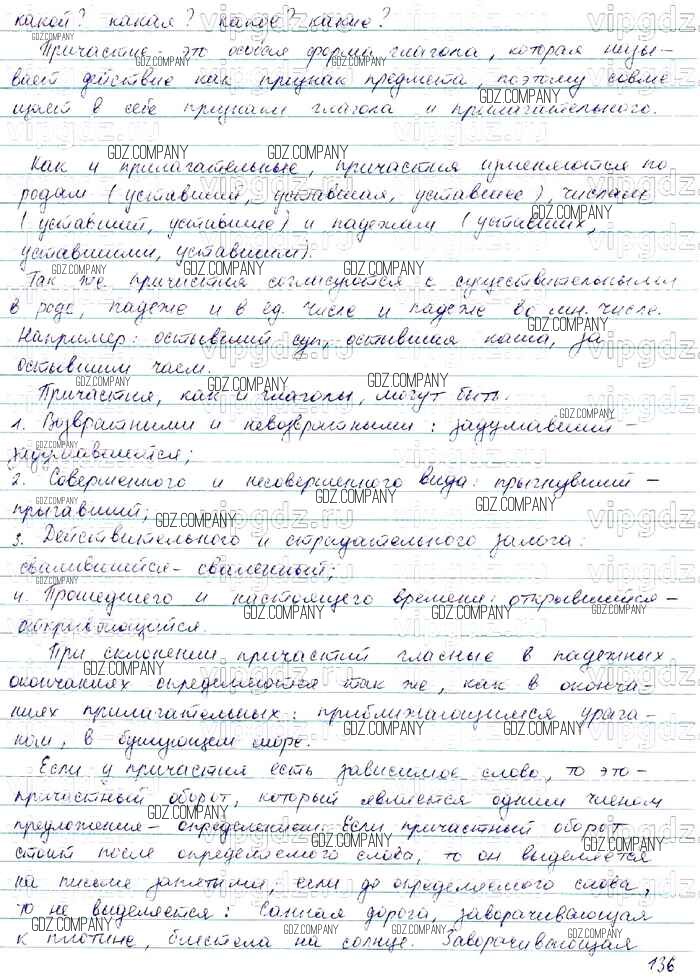 какой? какая? какое? какие?
Причастие - это особая форма глагола, которая назы-
вает действие как признак предмета, поэтому совме
щает в себе признаки глагола и прилагательного.
Как и прилагательные, причастия изменяются по
родам (уставший, уставшая, уставшее), числам
(уставший, уставшие) и падежам (уставших,
уставшими, уставшим).
Так же причастия согласуются с существительными
в роде, падеже и в ед. числе и падеже во мн. числе.
Например: остывший суп, остывшая каша, за
остывшим чаем.
Причастия, как и глаголы, могут быть:
1. Возвратными и невозвратными: задумавший -
задумавшийся;
2. Совершенного и несовершенного вида: прыгнувший -
прыгавший;
3. Действительного и страдательного залога:
свалившийся - сваленный;
4. Прошедшего и настоящего времени: открывшийся -
открывающийся.
При склонении причастий гласные в падежных
окончаниях определяются так же, как в оконча-
ниях прилагательных: приближающимся урага-
ном, в бушующем море.
Если у причастия есть зависимое слово, то это -
причастный оборот, который является одним членом
предложения - определением. Если причастный оборот
стоит после определяемого слова, то он выделяется
на письме запятыми, если до определяемого слова,
то не выделяется: Санная дорога, заворачивающая
к плотине, блистела на солнце. Заворачивающая
136
GDZ.COMPANY
vipgdz.ru